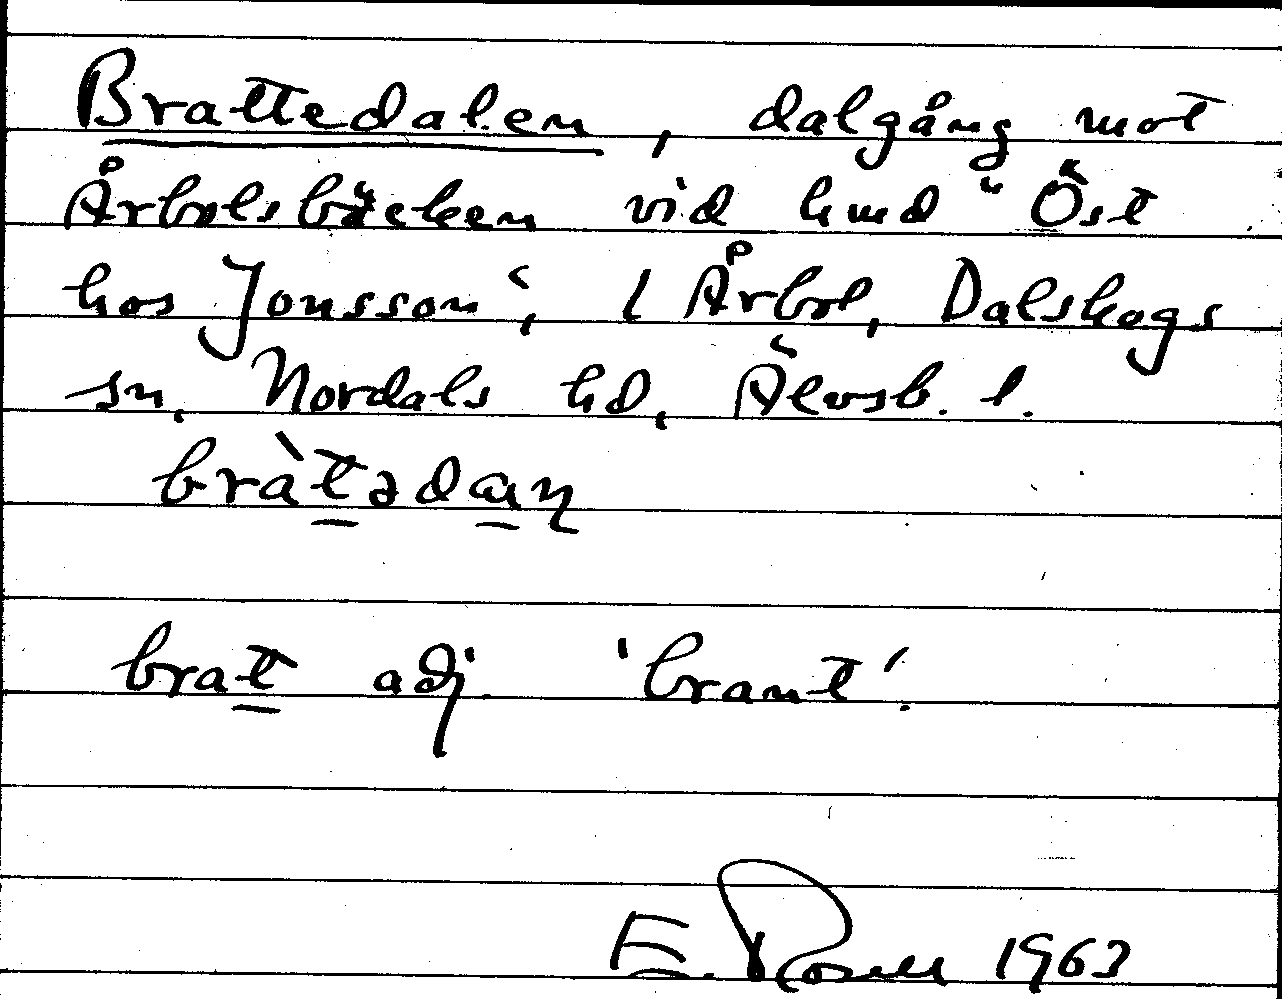 Brattedalen, dalgång mot
Årbolsbäcken vid hmd "Öst
hos Jonsson", i Årbol, Dalskogs
sn, Nordals hd, Älvsb. l.
bràt̲əda̲ṇ
brat̲ adj. 'brant'.
E. Rosell 1963